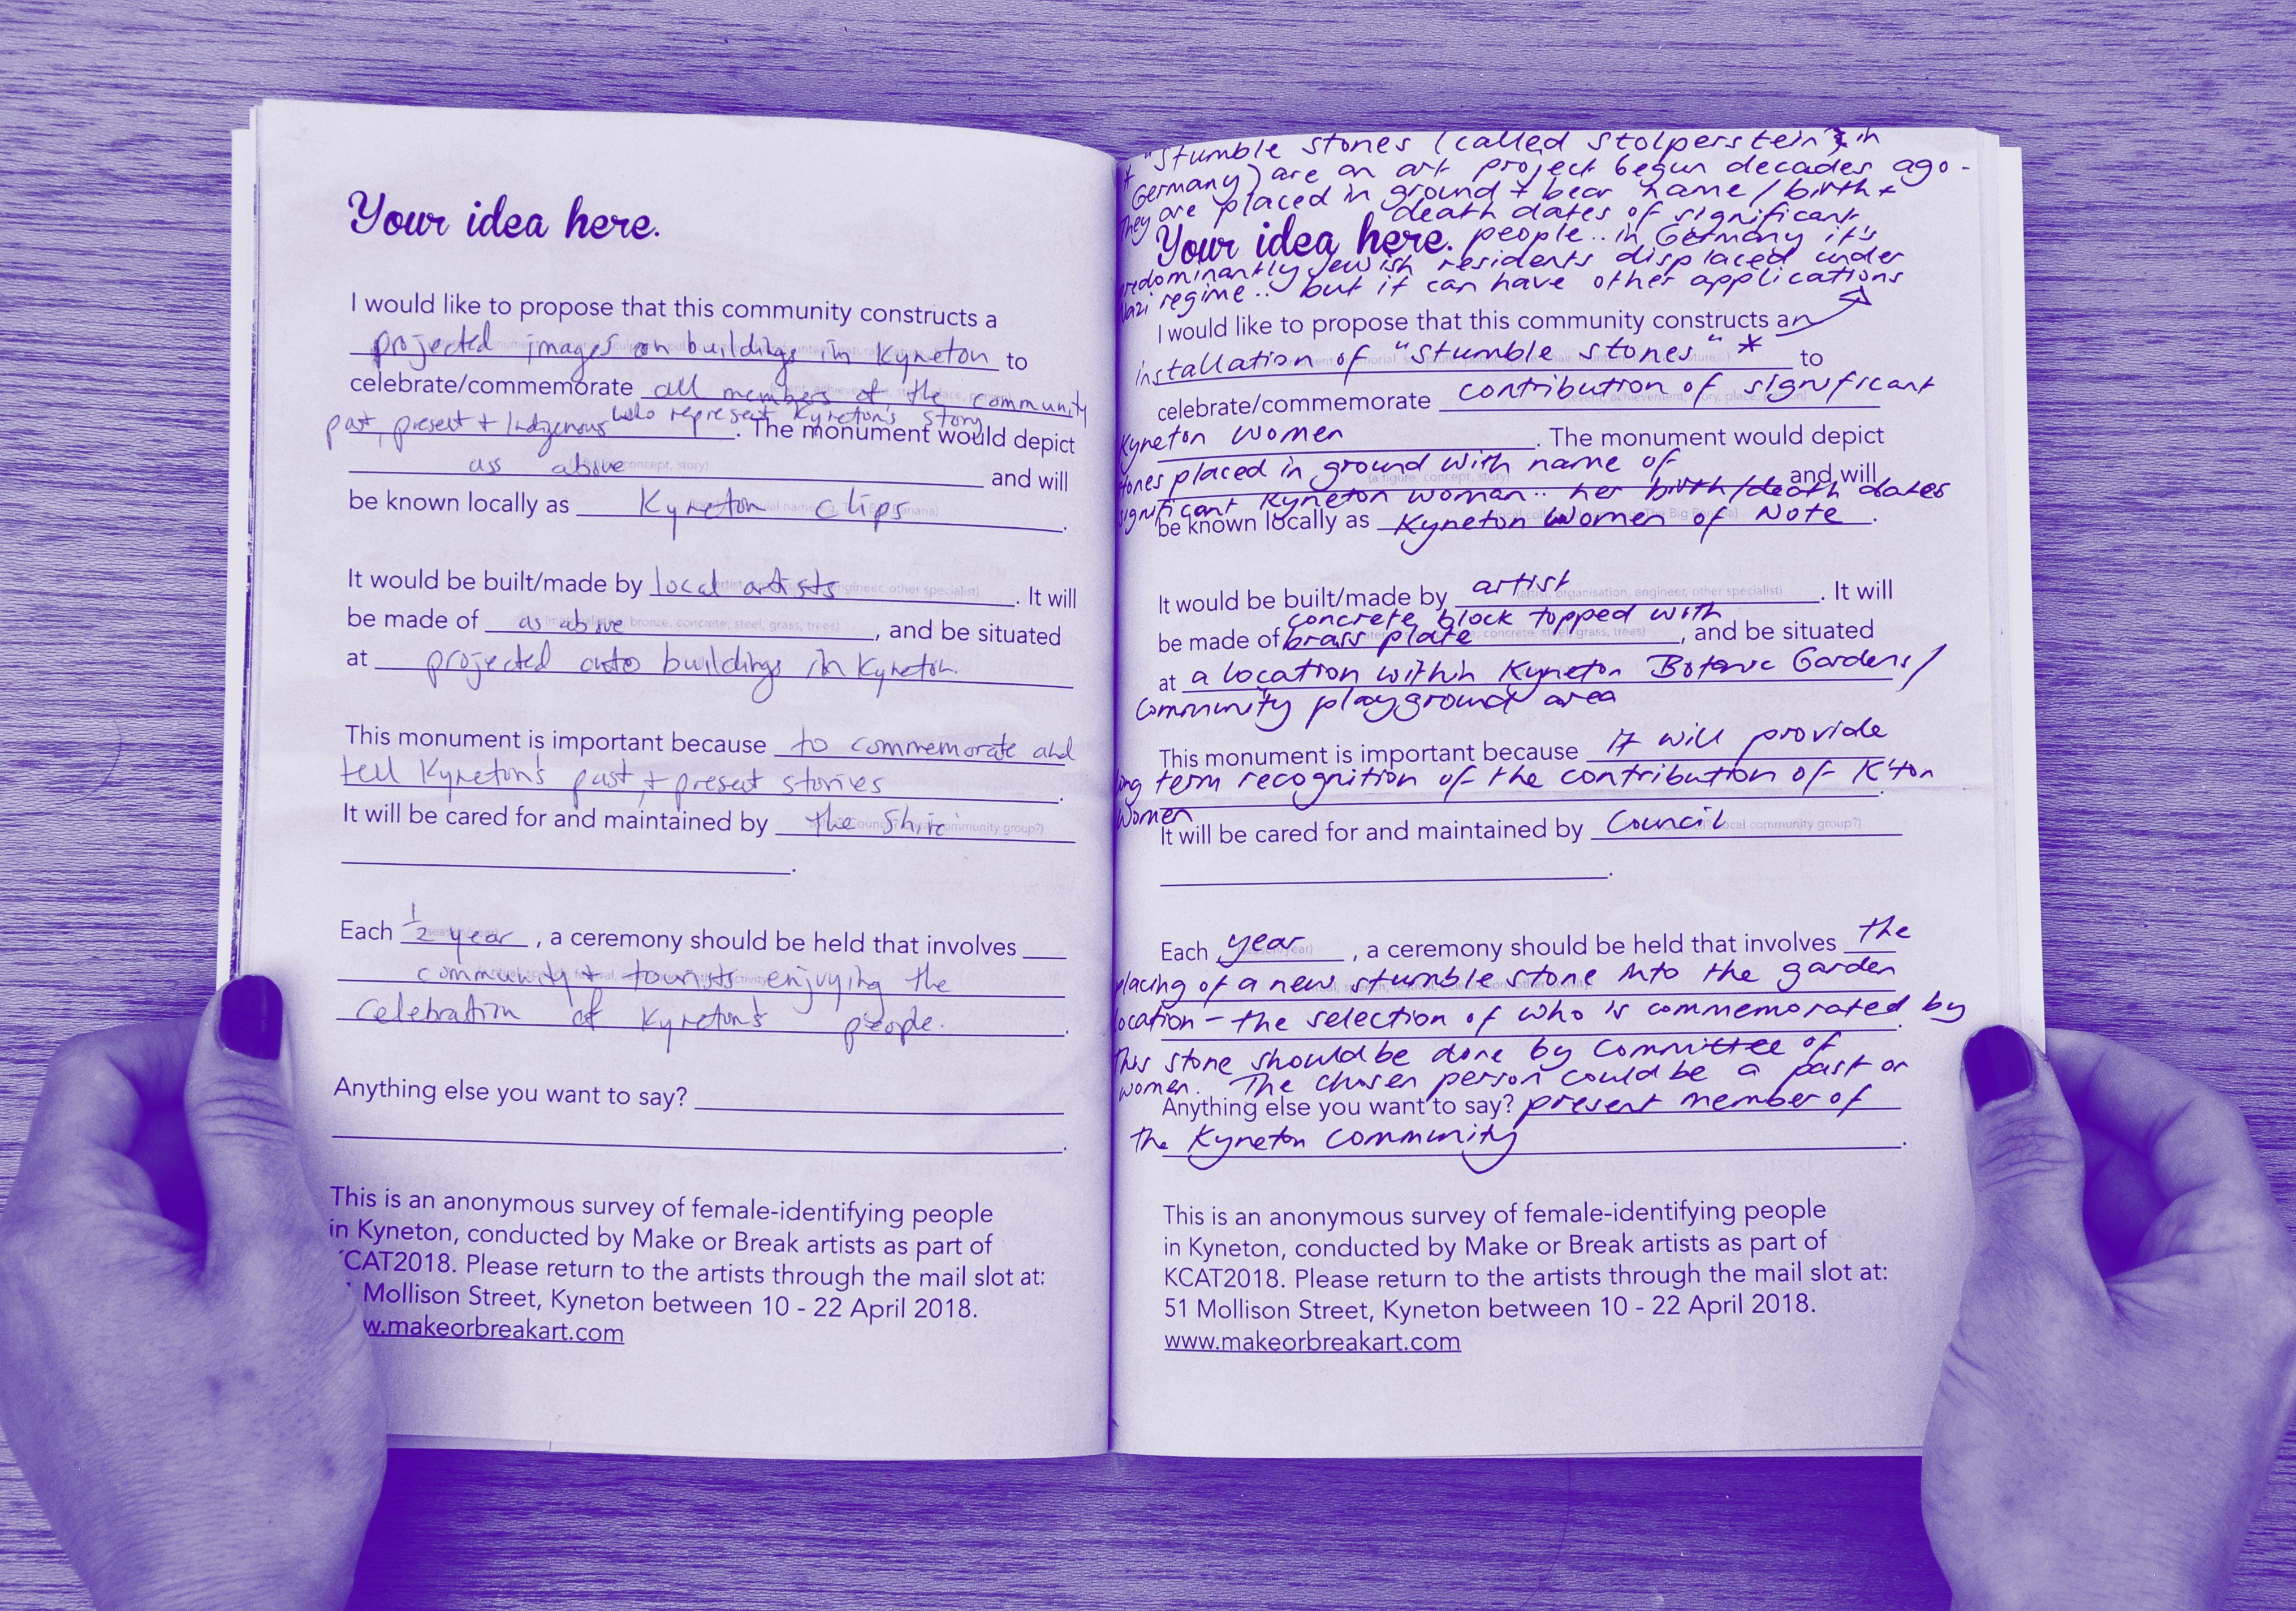 Your idea here.
I would like to propose that this community constructs a
projected images on buildings in Kyneton to
celebrate/commemorate all members of the community
who represent Kyneton's story
past, present + Indigenous. The monument would depict
ass above and will
be known locally as Kyneton Clips.
It would be built/made by local artists. It will
be made of as above, and be situated
at projected onto buildings in Kyneton.
This monument is important because to commemorate and
tell Kyneton's past, + present stories.
It will be cared for and maintained by the Shire
.
Each 1/2 year, a ceremony should be held that involves
community + tourists enjoying the
celebration of Kyneton's people.
Anything else you want to say?
.
This is an anonymous survey of female-identifying people
in Kyneton, conducted by Make or Break artists as part of
CAT2018. Please return to the artists through the mail slot at:
Mollison Street, Kyneton between 10 - 22 April 2018.
w.makeorbreakart.com
* "Stumble stones (called Stolperstein in
Germany) are an art project begun decades ago -
They are placed in ground + bear name/birth +
death dates of significant
Your idea here. people.. in Germany it's
redominantly Jewish residents displaced under
Nazi regime.. but it can have other applications
I would like to propose that this community constructs an
installation of "stumble stones" * to
celebrate/commemorate contribution of significant
Kyneton women. The monument would depict
tones placed in ground with name of and will
significant Kyneton woman.. her birth/death dates
be known locally as Kyneton Women of Note.
It would be built/made by artist. It will
(artist, organisation, engineer, other specialist)
concrete block topped with
be made of brass plate, and be situated
at a location within Kyneton Botanic Gardens/
Community playground area
This monument is important because it will provide
ng term recognition of the contribution of K'ton
Women.
It will be cared for and maintained by Council
.
Each year, a ceremony should be held that involves the
placing of a new stumble stone into the garden
location - the selection of who is commemorated by
this stone should be done by committee of
women. The chosen person could be a past or
Anything else you want to say? present member of
the Kyneton community.
This is an anonymous survey of female-identifying people
in Kyneton, conducted by Make or Break artists as part of
KCAT2018. Please return to the artists through the mail slot at:
51 Mollison Street, Kyneton between 10 - 22 April 2018.
www.makeorbreakart.com